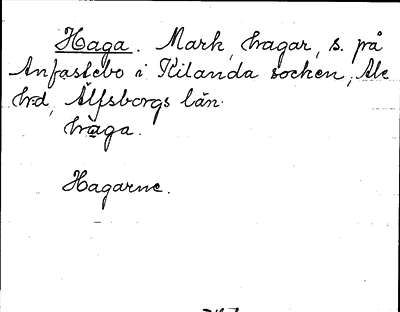 Haga. Mark, hagar, s. på
Anfastebo i Kilanda socken, Ale
hrd, Älfsborgs län.
haga.
Hagarne.